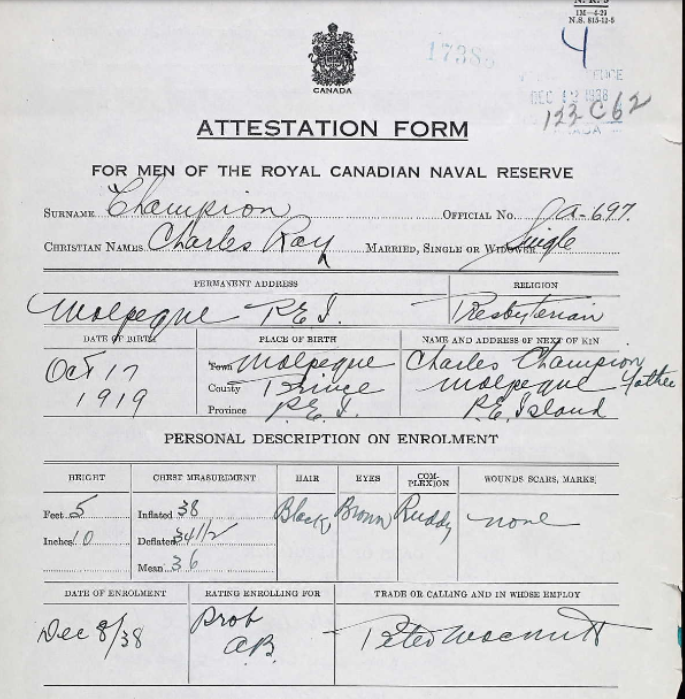 N.S. 815-12-5
1M—4-29
4
17385
DEC 1938
123 C 62
CANADA
ATTESTATION FORM
FOR MEN OF THE ROYAL CANADIAN NAVAL RESERVE
SURNAME Champion OFFICIAL No. A-697.
CHRISTIAN NAMES Charles Ray MARRIED, SINGLE OR WIDOWER Single
PERMANENT ADDRESS RELIGION
Malpeque P.E.I. Presbyterian
DATE OF BIRTH PLACE OF BIRTH NAME AND ADDRESS OF NEXT OF KIN
Oct 17 Town Malpeque Charles Champion
1919 County Prince Malpeque Father
Province P.E.I. P.E. Island
PERSONAL DESCRIPTION ON ENROLMENT
HEIGHT CHEST MEASUREMENT HAIR EYES COM-PLEXION WOUNDS SCARS, MARKS,
Feet 5 Inflated 38 Black Brown Ruddy none
Inches 10 Deflated 34 1/2
Mean 36
DATE OF ENROLMENT RATING ENROLLING FOR TRADE OR CALLING AND IN WHOSE EMPLOY
Dec 8/38 Prob Peter MacNutt
A.B.